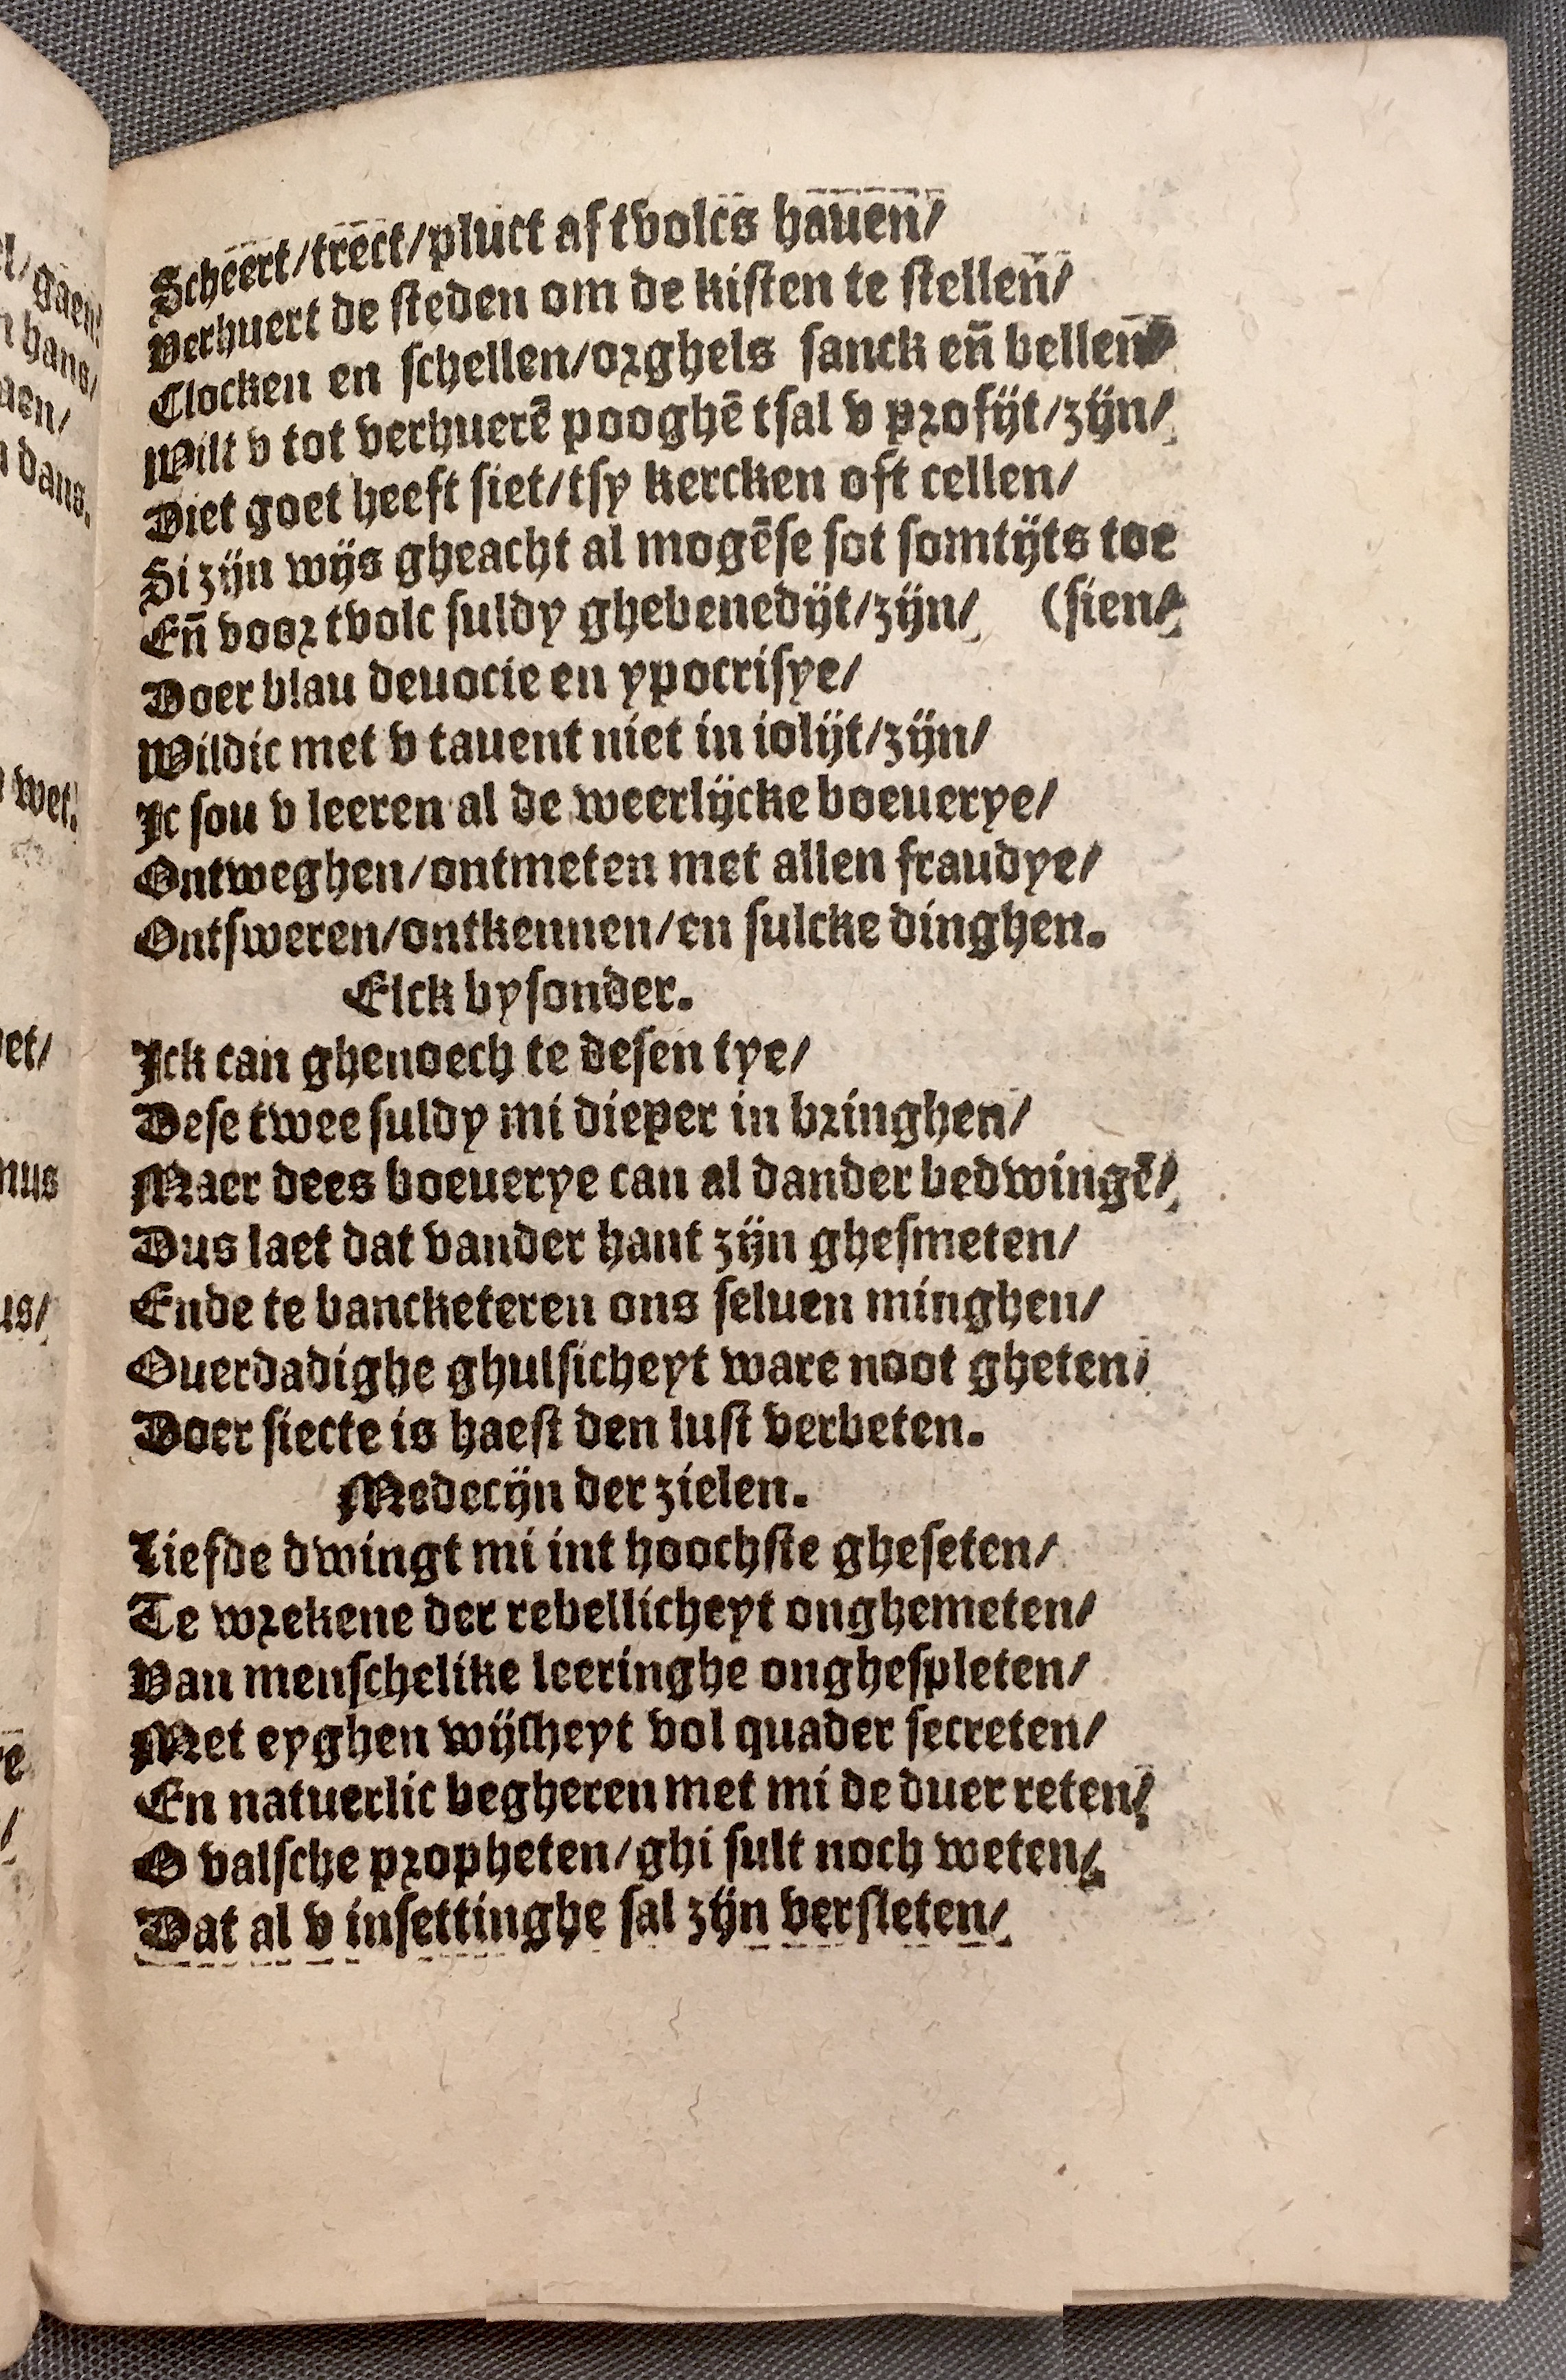 Scheert/trect/pluct af tvolcs hauen/
Verhuert de steden om de kisten te stellen/
Clocken en schellen/orghels sanck en̄ bellen/
Wilt v tot verhuerē pooghē tsal v profijt/zijn/
Diet goet heeft siet/tsy kercken oft cellen/
Si zijn wijs gheacht al mogēse sot somtijts toe
En̄ voor tvolc suldy ghebenedijt/zijn/ (sien/
Doer blau deuocie en ypocrisye/
Wildic met v tauent niet in iolijt/zijn/
Ic sou v leeren al de weerlijcke boeuerye/
Ontweghen/ontmeten met allen fraudye/
Ontsweren/ontkennen/en sulcke dinghen.
Elck bysonder.
Ick can ghenoech te desen tye/
Dese twee suldy mi dieper in bringhen/
Maer dees boeuerye can al dander bedwingē/
Dus laet dat vander hant zijn ghesmeten/
Ende te bancketeren ons seluen minghen/
Ouerdadighe ghulsicheyt ware noot gheten/
Doer siecte is haest den lust verbeten.
Medecijn der zielen.
Liefde dwingt mi int hoochste gheseten/
Te wrekene der rebellicheyt onghemeten/
Van menschelike leeringhe onghespleten/
Met eyghen wijsheyt vol quader secreten/
En natuerlic begheren met mi de duer reten/
O valsche propheten/ghi sult noch weten/
Dat al v insettinghe sal zijn versleten/
gaen/
hans/
dans.
wet.